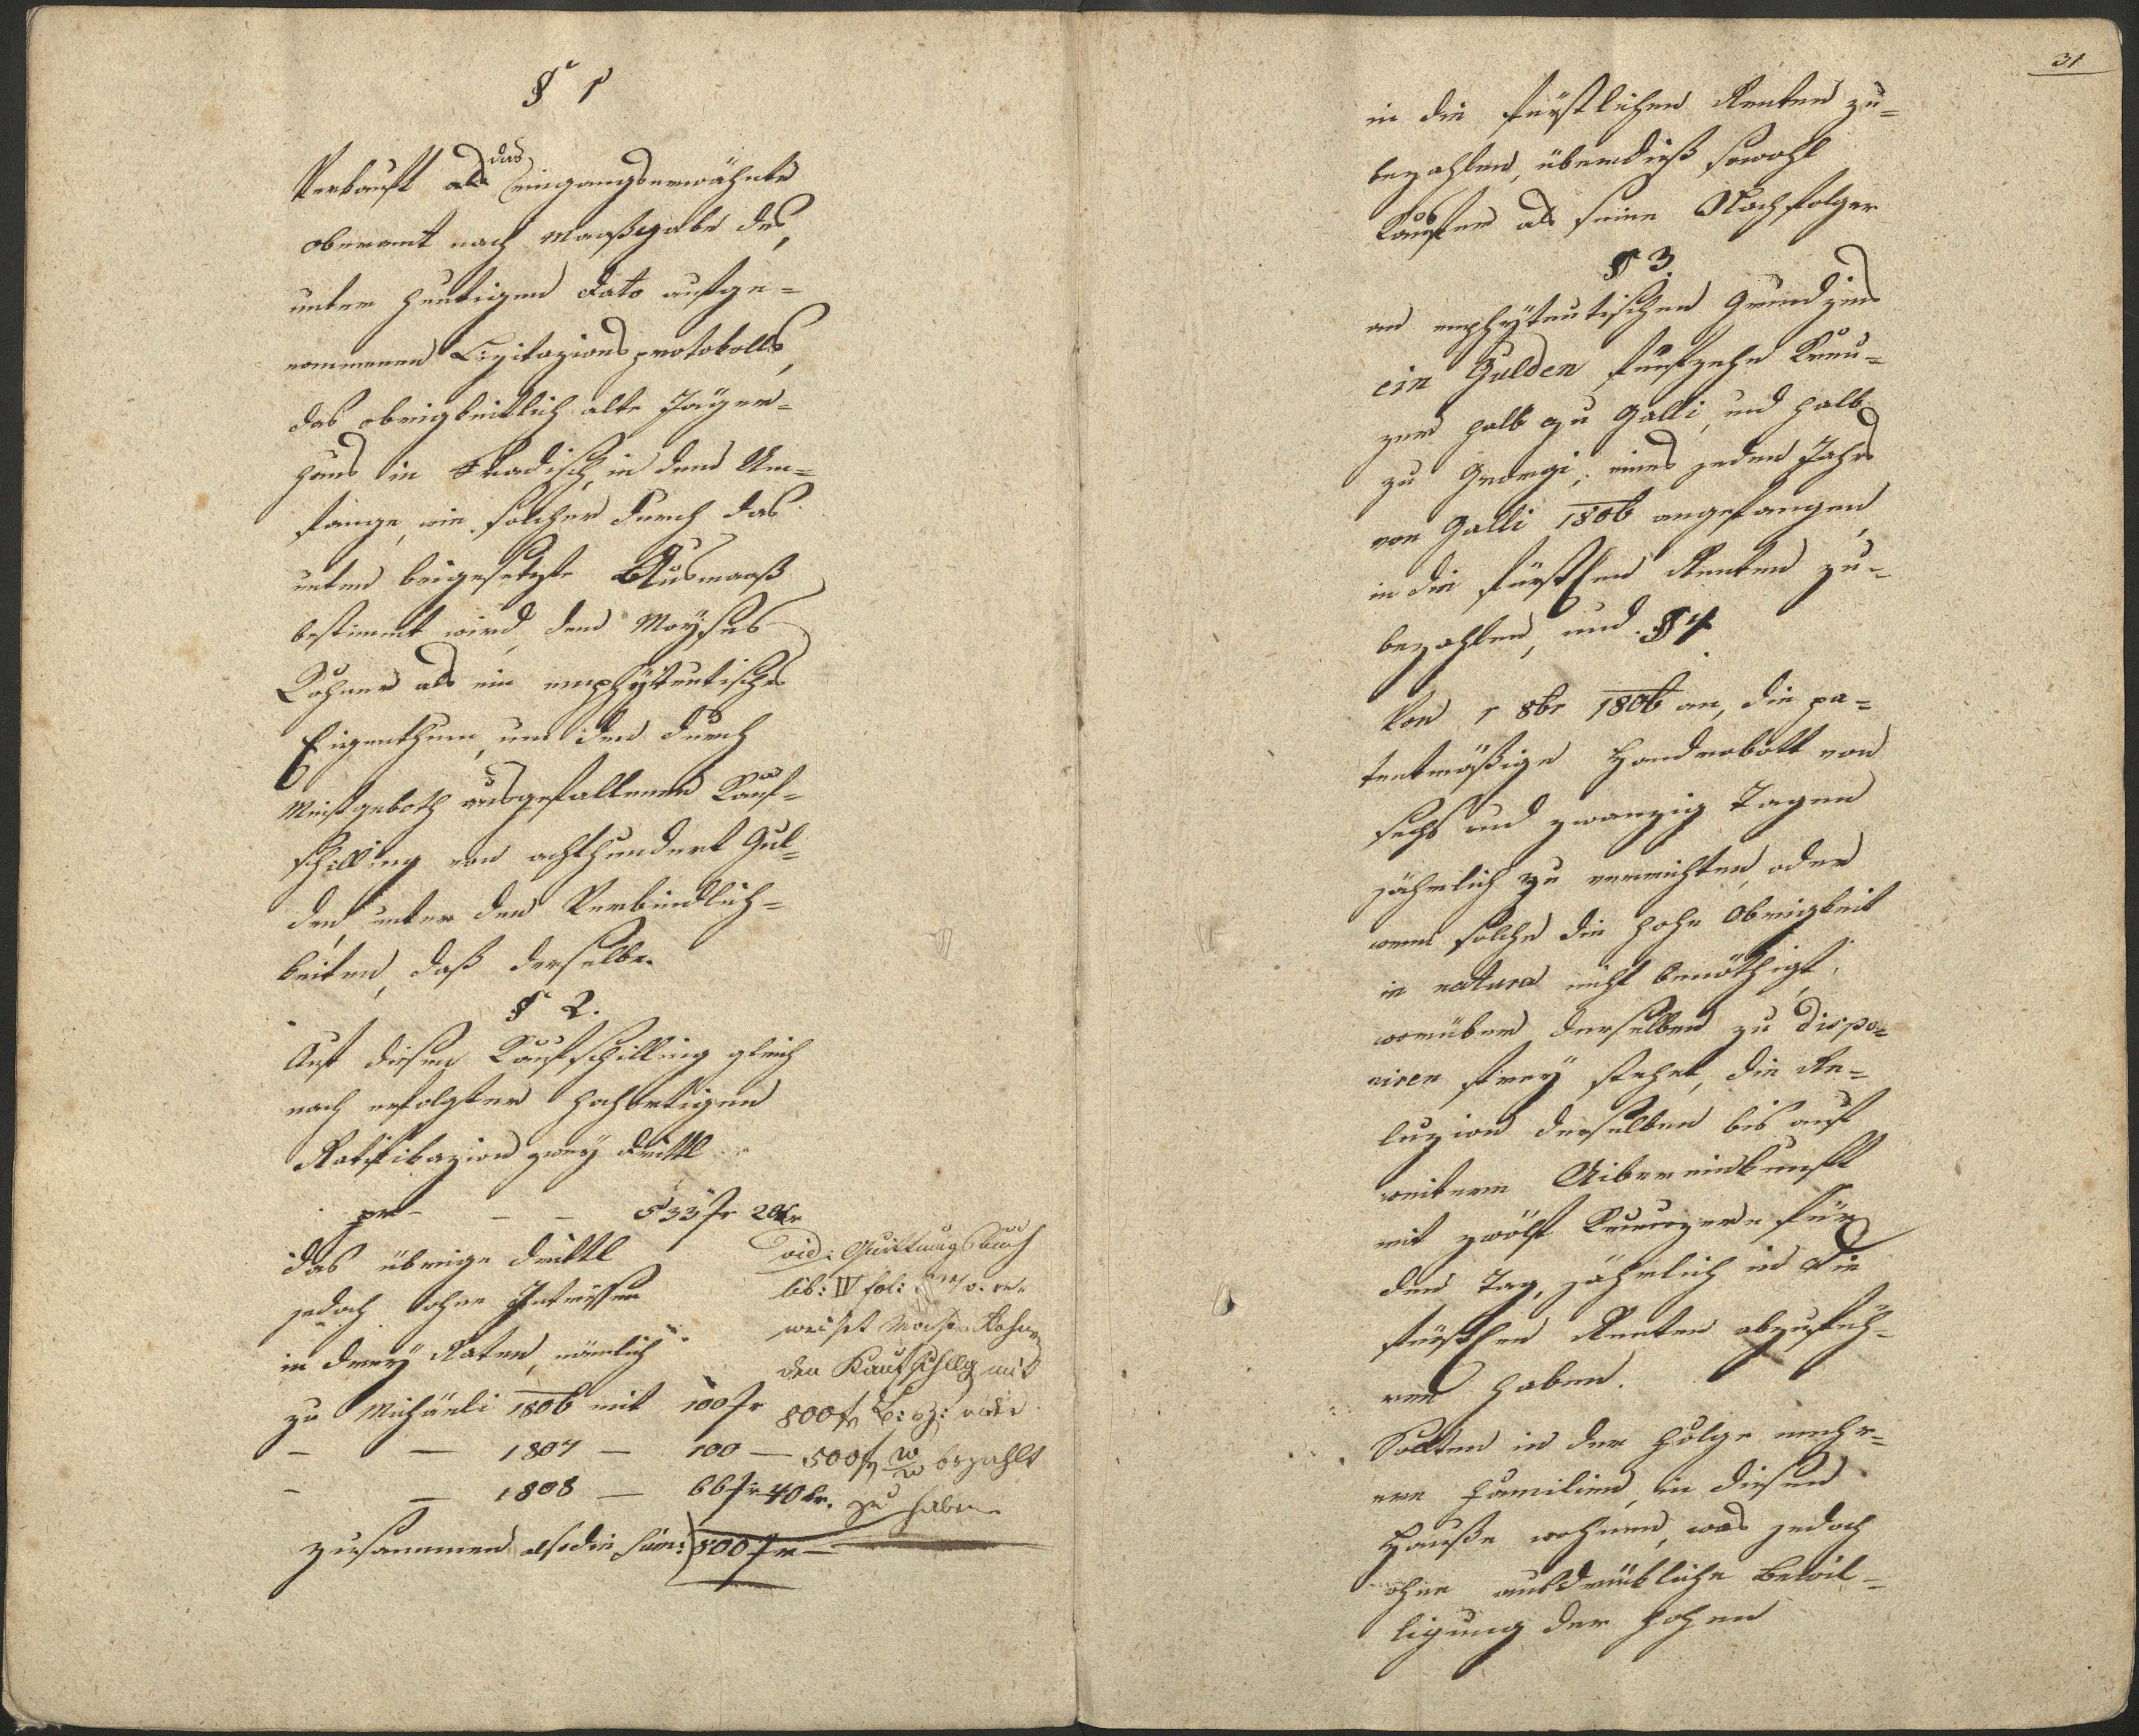 § 1
Verkauft das eingangserwähnte
Oberamt nach Maaßgabe des
unter heutigen dato aufge=
nommenen Lizitazionsprotokolls,
das obrigkeitlich alte Jäger=
haus in Hradisch, in dem Um=
fange, wie solcher durch das
unten beigesetzte Ausmaaß
bestimmt wird, dem Moyses
Kohner als ein emphyteutisches
Eigenthum, um den durch
Meistgeboth ausgefallenen Kauf=
schilling von achthundert Gul=
den, unter den Verbindlich=
keiten, daß derselbe.
§ 2.
Auf diesen Kaufschilling gleich
nach erfolgter hochortigen
Ratifikazion zwey Drittl
pr – – – 533 fr 20 kr
das übrige Drittl
jedoch ohne Intressen
in drey Raten, nämlich
zu Michaeli 1806 mit 100 fr
– – 1807 – 100 –
– – 1808 – 66 fr 40 kr.
zusammen also die Sum: 800 fr –
vid: Quittungsbuch
lib: IV fol:
weiset Moises Kohner
den Kaufschllg mit
800 fr B: Z: oder
500 fr W W bezahlt
zu haben
31
in die fürstlichen Renten zu=
bezahlen, überdieß sowohl
Käufer als seine Nachfolger
§ 3.
an emphyteutischen Grundzins
ein Gulden fünfzehn Kreu=
zer halb zu Galli, und halb
zu Georgi, eines jeden Jahrs
von Galli 1806 angefangen,
in die fürstlen Renten zu=
bezahlen, und § 4.
Von 1 8br 1806 an, die pa=
tentmäßige Handrobott von
sechs und zwanzig Tagen
jährlich zu verrichten, oder
wenn solche die hohe Obrigkeit
in natura nicht benöthigt,
worüber derselben zu dispo=
niren frey stehet, die Re=
luzion derselben bis auf
weitere Uibereinkunft
mit zwölf Kreuzer für
den Tag, jährlich in die
fürstlen Renten abzufüh=
ren haben.
Sollten in der Folge mehr=
ere Familien, in diesem
Hause wohnen, was jedoch
ohne ausdrückliche Bewil=
ligung der hohen